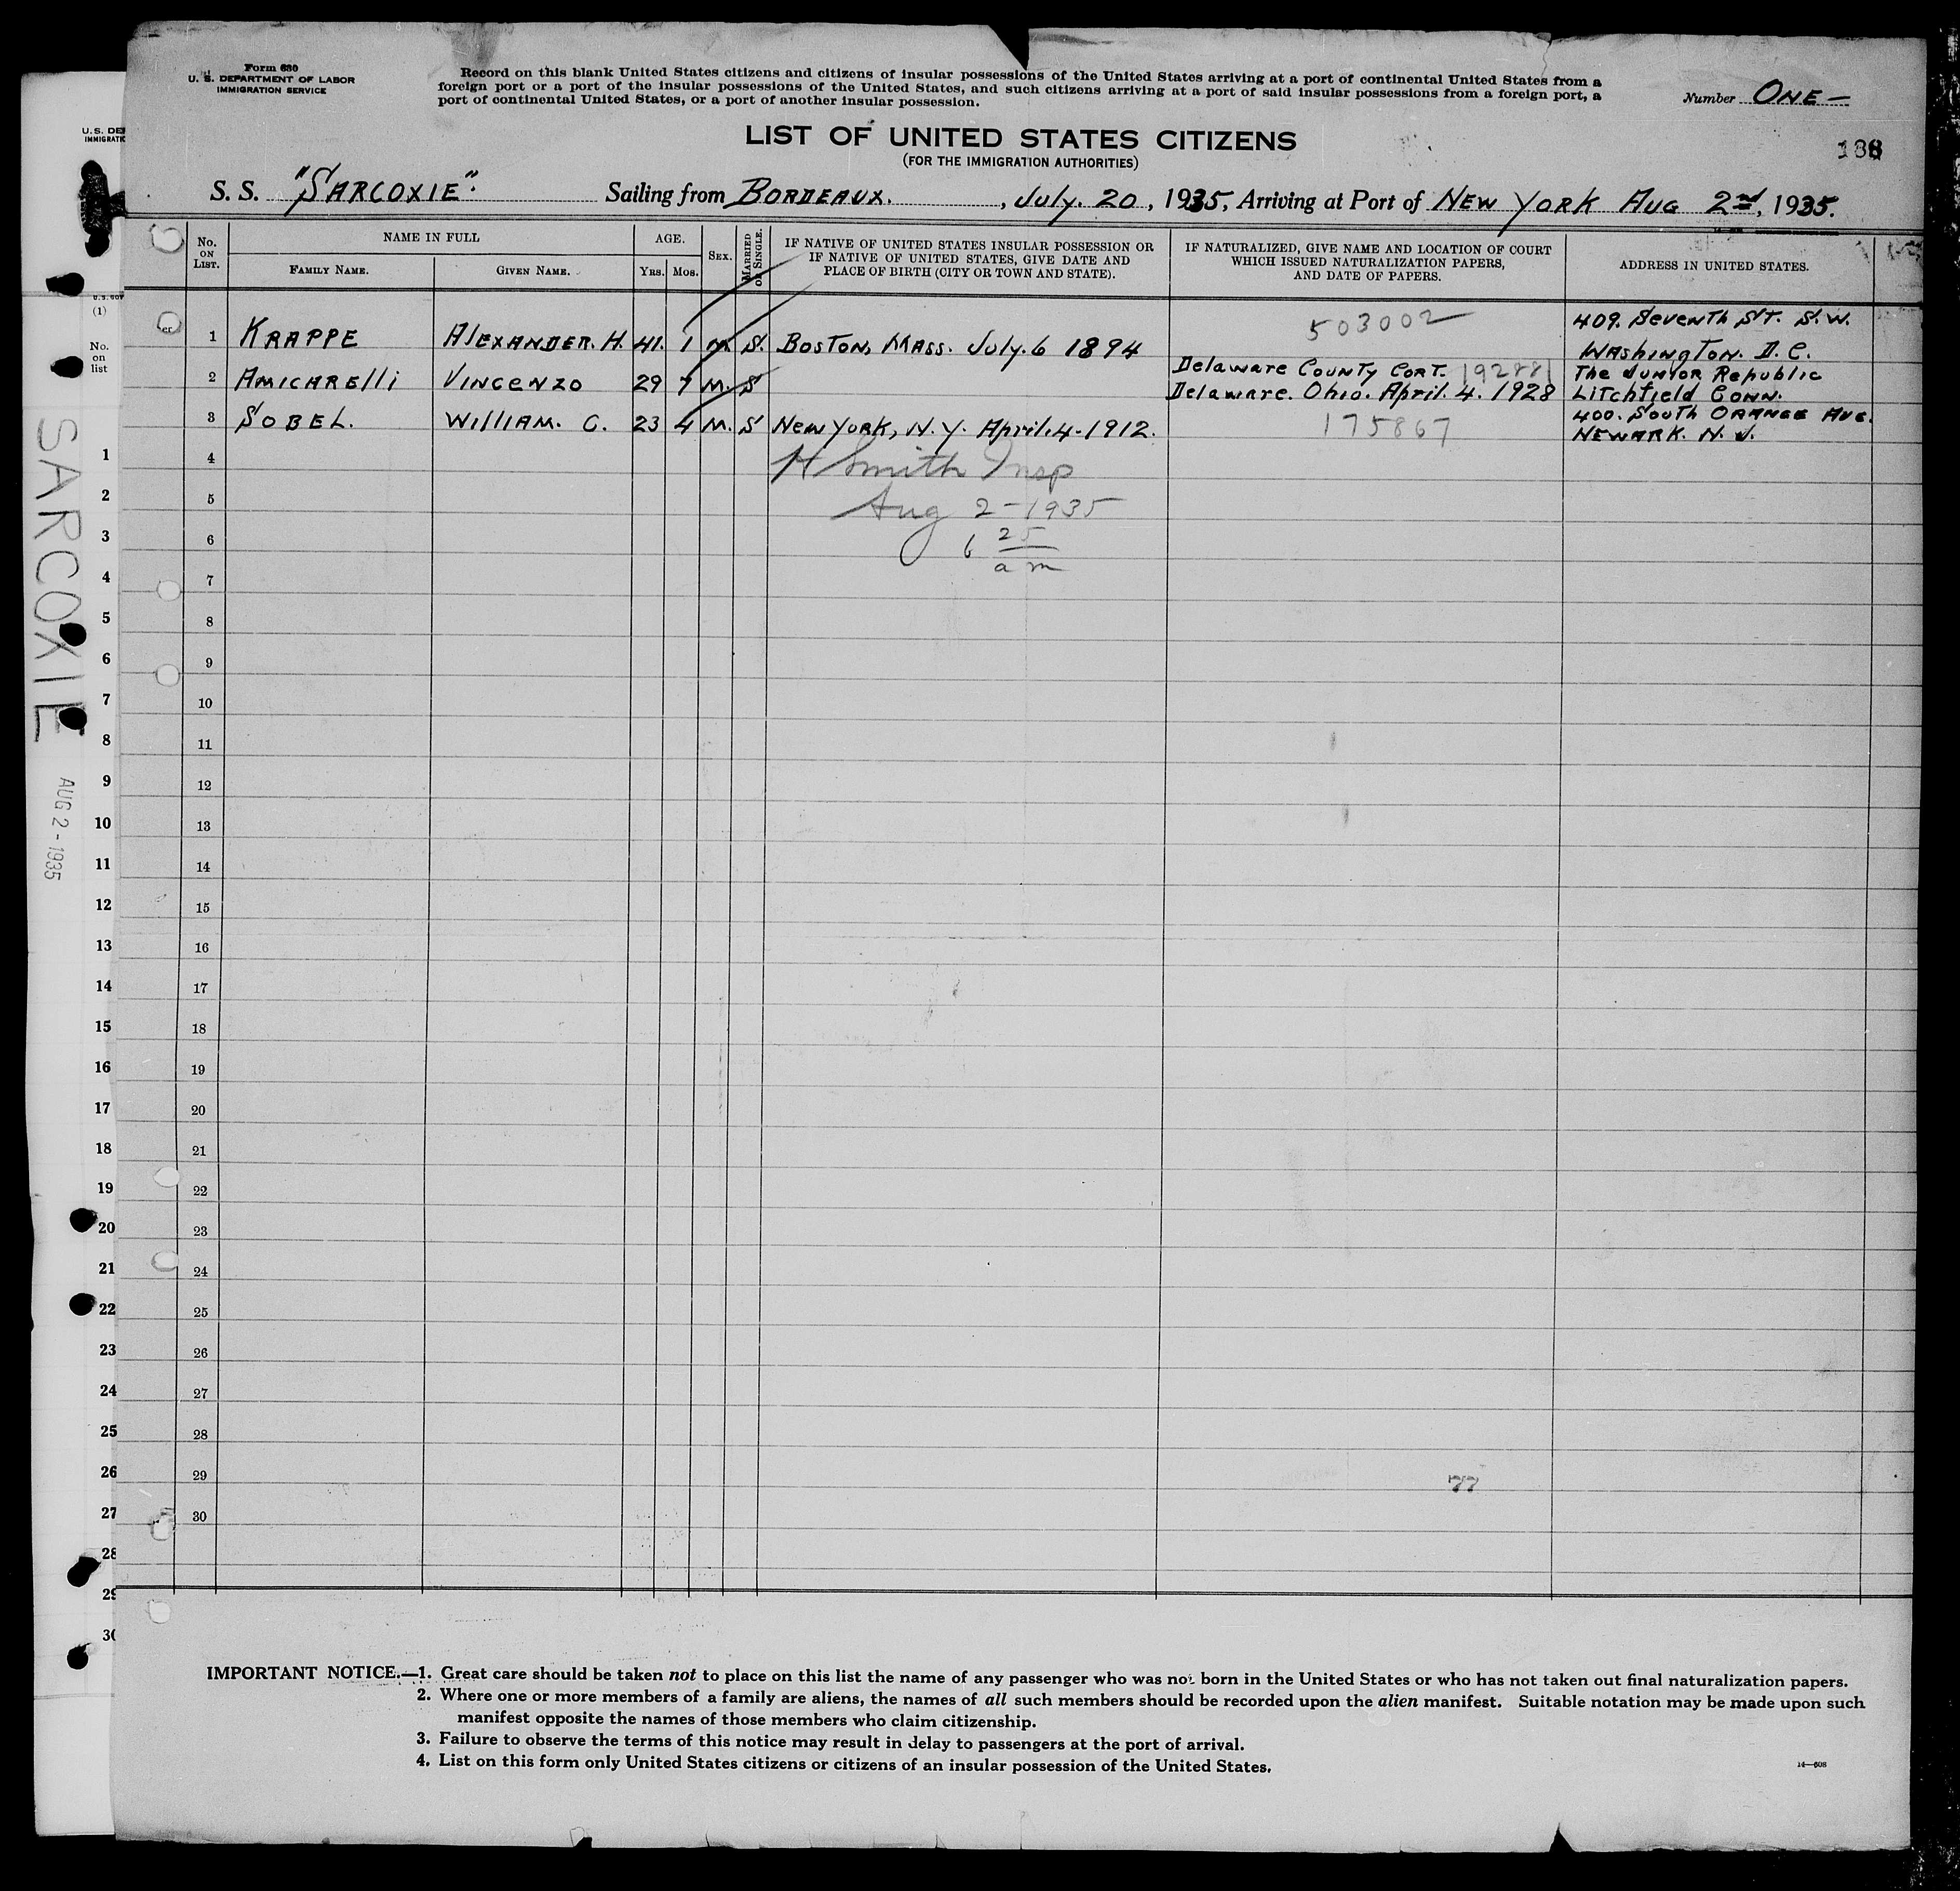 Form 630
U. S. DEPARTMENT OF LABOR
IMMIGRATION SERVICE
Record on this blank United States citizens and citizens of insular possessions of the United States arriving at a port of continental United States from a
foreign port or a port of the insular possessions of the United States, and such citizens arriving at a port of said insular possessions from a foreign port, a
port of continental United States, or a port of another insular possession.
Number ONE-
LIST OF UNITED STATES CITIZENS
(FOR THE IMMIGRATION AUTHORITIES)
S. S. "SARCOXIE". Sailing from BORDEAUX. , July. 20, 1935, Arriving at Port of NEW YORK AUG 2nd, 1935.
No. ON LIST.
NAME IN FULL
FAMILY NAME.
GIVEN NAME.
AGE.
YRS.
MOS.
SEX.
MARRIED OR SINGLE.
IF NATIVE OF UNITED STATES INSULAR POSSESSION OR
IF NATIVE OF UNITED STATES, GIVE DATE AND
PLACE OF BIRTH (CITY OR TOWN AND STATE).
IF NATURALIZED, GIVE NAME AND LOCATION OF COURT
WHICH ISSUED NATURALIZATION PAPERS,
AND DATE OF PAPERS.
ADDRESS IN UNITED STATES.
1 KRAPPE ALEXANDER. H. 41. 1 M S. BOSTON, MASS. July. 6 1894 503002 409. Seventh ST. S.W.
WAshington. D. C.
2 AMICARElli VINCENZO 29 7 M. S Delaware COUNTy CORT. 192881 The JUNIOR Republic
Delaware. Ohio. April. 4. 1928 LITchfield CONN.
3 SOBEL. WILLIAM. C. 23 4 M. S New YORK, N.Y. April.4-1912. 175867 400. SOUTH ORANGE AVE.
NEWARK. N. J.
4
H Smith Insp
5
Aug 2-1935
6
6 25
am
7
8
9
10
11
12
13
14
15
16
17
18
19
20
21
22
23
24
25
26
27
28
29
77
30
IMPORTANT NOTICE.—1. Great care should be taken not to place on this list the name of any passenger who was not born in the United States or who has not taken out final naturalization papers.
2. Where one or more members of a family are aliens, the names of all such members should be recorded upon the alien manifest. Suitable notation may be made upon such
manifest opposite the names of those members who claim citizenship.
3. Failure to observe the terms of this notice may result in delay to passengers at the port of arrival.
4. List on this form only United States citizens or citizens of an insular possession of the United States.
14—608
U.S. DE
IMMIGRATIC
U.S. GOV
(1)
er
No.
on
list
1
2
3
4
5
6
7
8
9
10
11
12
13
14
15
16
17
18
19
20
21
22
23
24
25
26
27
28
29
30
SARCOXIE
AUG 2 - 1935